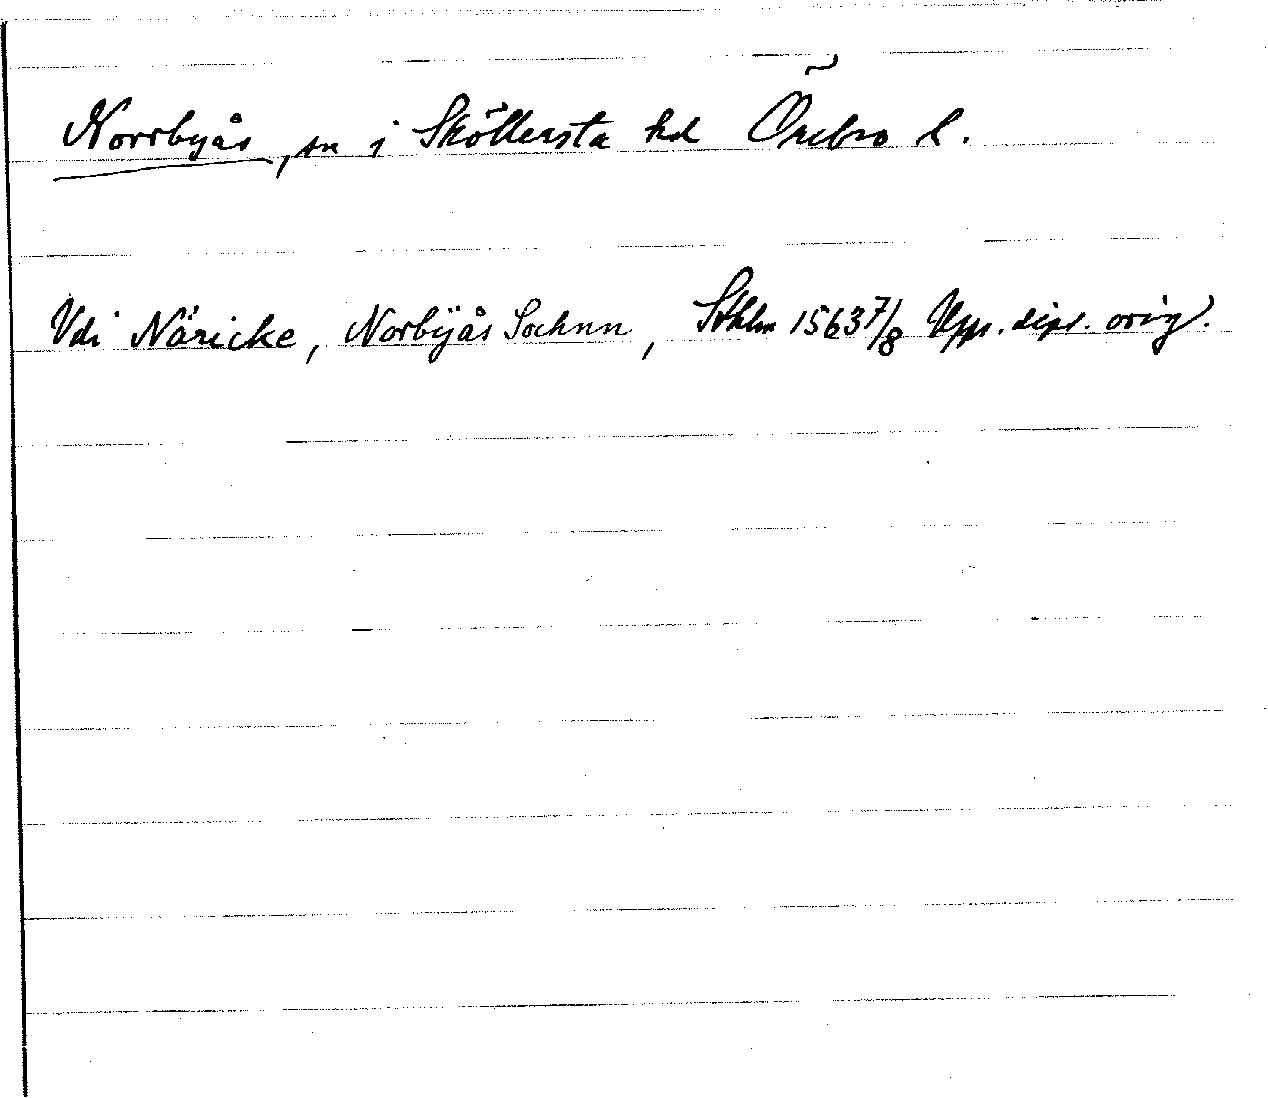 Norrbyås, sn i Sköllersta hd Örebro l.
Vdi Näricke, Norbÿås Sochnn, Sthlm 1563 7/8 Upps. dipl. orig.